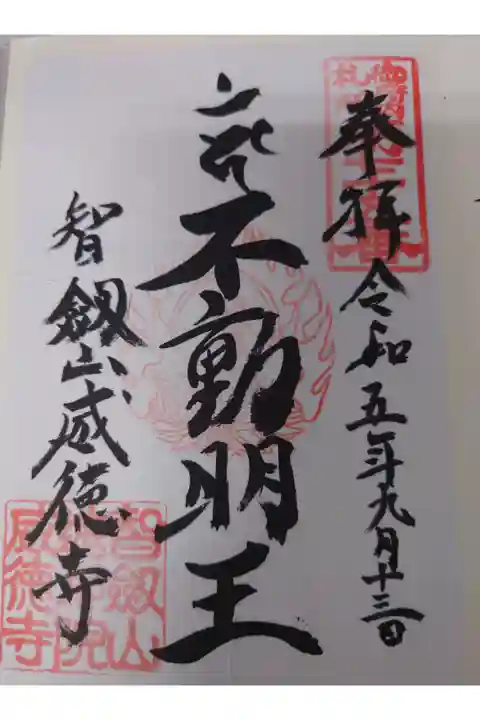 奉拝 令和五年九月十三日
不動明王
智劔山威徳寺
智劔山
威徳寺